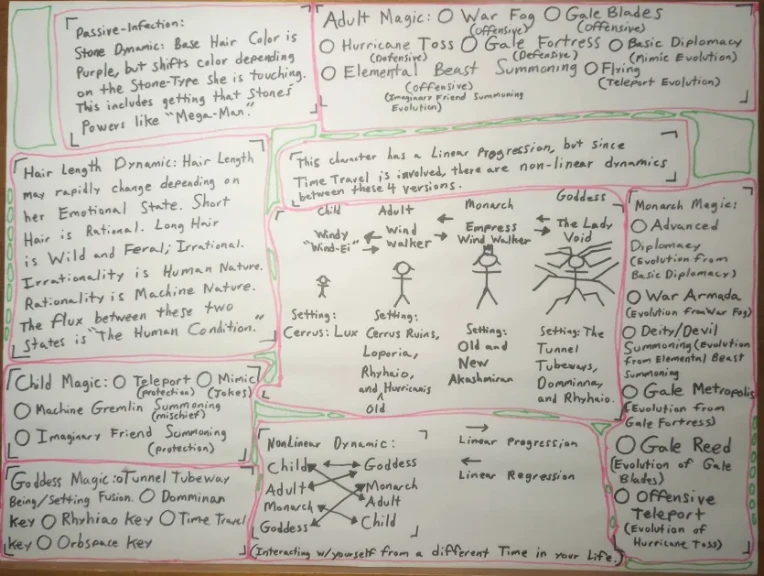 Passive-Infection:
Stone Dynamic: Base Hair Color is
Purple, but shifts color depending
on the Stone-Type she is touching.
This includes getting that Stones'
Powers like "Mega-Man."
Adult Magic: O War Fog O Gale Blades
(Offensive) (Offensive)
O Hurricane Toss O Gale Fortress O Basic Diplomacy
(Defensive) (Defensive) (Mimic Evolution)
O Elemental Beast Summoning O Flying
(Offensive) (Teleport Evolution)
(Imaginary Friend Summoning
Evolution)
This character has a Linear Progression, but since
Time Travel is involved, there are non-linear dynamics
between these 4 versions.
Hair Length Dynamic: Hair Length
may rapidly change depending on
her Emotional State. Short
Hair is Rational. Long Hair
is Wild and Feral; Irrational.
Irrationality is Human Nature.
Rationality is Machine Nature.
The flux between these two
States is "The Human Condition."
Child Adult Monarch Goddess
Windy Wind Empress The Lady
"Wind-Ei" Walker Wind Walker Void
Setting: Setting: Setting: Setting: The
Cerrus: Lux Cerrus Ruins, Old and Tunnel
Loporia, New Tubeways,
Rhyhaio, Akashmiran Domminnay,
and Hurricanis and Rhyhaio.
Old
Monarch Magic:
O Advanced
Diplomacy
(Evolution from
Basic Diplomacy)
O War Armada
(Evolution from War Fog)
O Deity/Devil
Summoning (Evolution
from Elemental Beast
Summoning
O Gale Metropolis
(Evolution from
Gale Fortress)
O Gale Reed
(Evolution of Gale
Blades)
O Offensive
Teleport
(Evolution of
Hurricane Toss)
Child Magic: O Teleport O Mimic
(protection) (Jokes)
O Machine Gremlin Summoning
(mischief)
O Imaginary Friend Summoning
(protection)
Goddess Magic: O Tunnel Tubeway
Being/Setting Fusion. O Domminan
Key O Rhyhiao Key O Time Travel
Key O Orbspace Key
NonLinear Dynamic:
Child Goddess
Adult Monarch
Monarch Adult
Goddess Child
→ Linear Progression
← Linear Regression
(Interacting w/yourself from a different Time in your Life.)